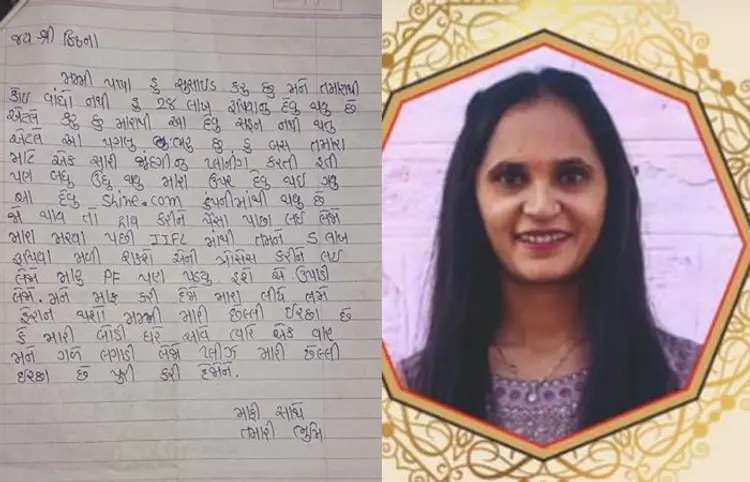 જય શ્રી ક્રિષ્ના
મમ્મી પાપા હું સુસાઇડ કરું છું મને તમારાથી
કોઇ વાંધો નથી હું 28 લાખ રૂપિયાનું દેવુ થયુ છે
એટલે કરું છું મારાથી આ દેવુ સહન નથી થતુ
એટલે આ પગલુ ભરૂ છું હું બસ તમારા
માટે એક સારી જીંદગીનુ પ્લાનીંગ કરતી હતી
પણ બધુ ઉંધુ થયુ મારા ઉપર દેવુ થઇ ગયુ
આ દેવુ Shine.com કંપનીમાંથી થયુ છે
જો થાય તો કરીને પૈસા પાછા લઇ લેજો
મારા મરવા પછી IIFL માંથી તમને 5 લાખ
રૂપિયા મળી શકશે એની પ્રોસેસ કરીને લઇ
લેજો મારુ PF પણ પડયુ હશે એ ઉપાડી
લેજો. મને માફ કરી દેજો મારા લીધે તમે
હેરાન થયા મમ્મી મારી છેલ્લી ઇચ્છા છે
કે મારી બોડી ઘરે આવે ત્યારે એક વાર
મને ગળે લગાડી લેજો પ્લીઝ મારી છેલ્લી
ઇચ્છા છે પુરી કરી દેજોને.
માફી સાથે
તમારી ભુમિ